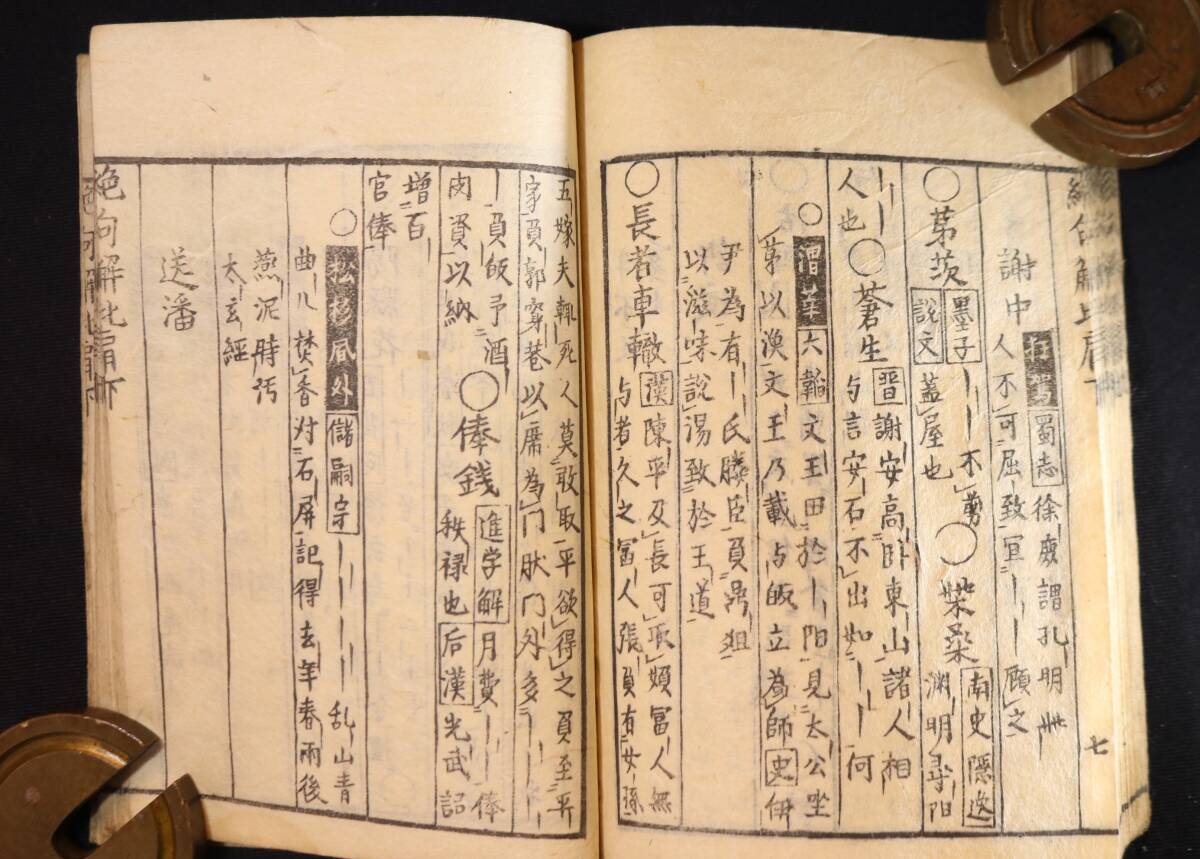 枉駕 蜀志 徐庶謂孔明
謝中 人不可屈致宜｜｜顧之
○茅茨 墨子 ｜｜不剪 ○柴桑 南史隱逸
説文 蓋屋也 渊明尋阳
｜｜ ○蒼生 晋 謝安高卧東山諸人相
人也 与言安石不出如｜｜何
○渭華 六韜 文王田於｜阳見太公坐
茅以漁文王乃載与皈立為師 史 伊
尹為有｜氏媵臣負鼎俎
以滋味説湯致於王道
○長者車轍 漢 陳平及長可取婦冨人無
与者久之冨人張負有女孫
五嫁夫輙死人莫敢取平欲得之負至平
家負郭窮巷以席為門肰門外多｜｜
｜負皈予酒 ○俸錢 進学解 月費｜｜俸
肉資以納 秩禄也 后漢 光武詔
増百
官俸
○ 松杉風外 儲嗣宗 ｜｜｜｜乱山青
曲几焚香对石屏記得去年春雨後
燕泥時汚
太玄經
送潘
七
絶句解